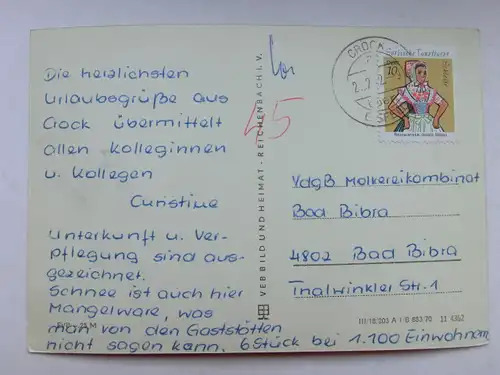 Die herzlichsten
Urlaubsgrüße aus
Crock übermittelt
allen Kolleginnen
u. Kollegen
Christine
Unterkunft u. Ver-
pflegung sind aus-
gezeichnet.
Schnee ist auch hier
Mangelware, was
man von den Gaststätten
nicht sagen kann. 6 Stück bei 1.100 Einwohnern
EVP -,25 M
VEB BILD UND HEIMAT · REICHENBACH I. V.
45
CROCK
DDR
10
VdgB Molkereikombinat
Bad Bibra
4802 Bad Bibra
Thalwinkler Str. 1
III/18/203 A 1 B 883/70 11 4362